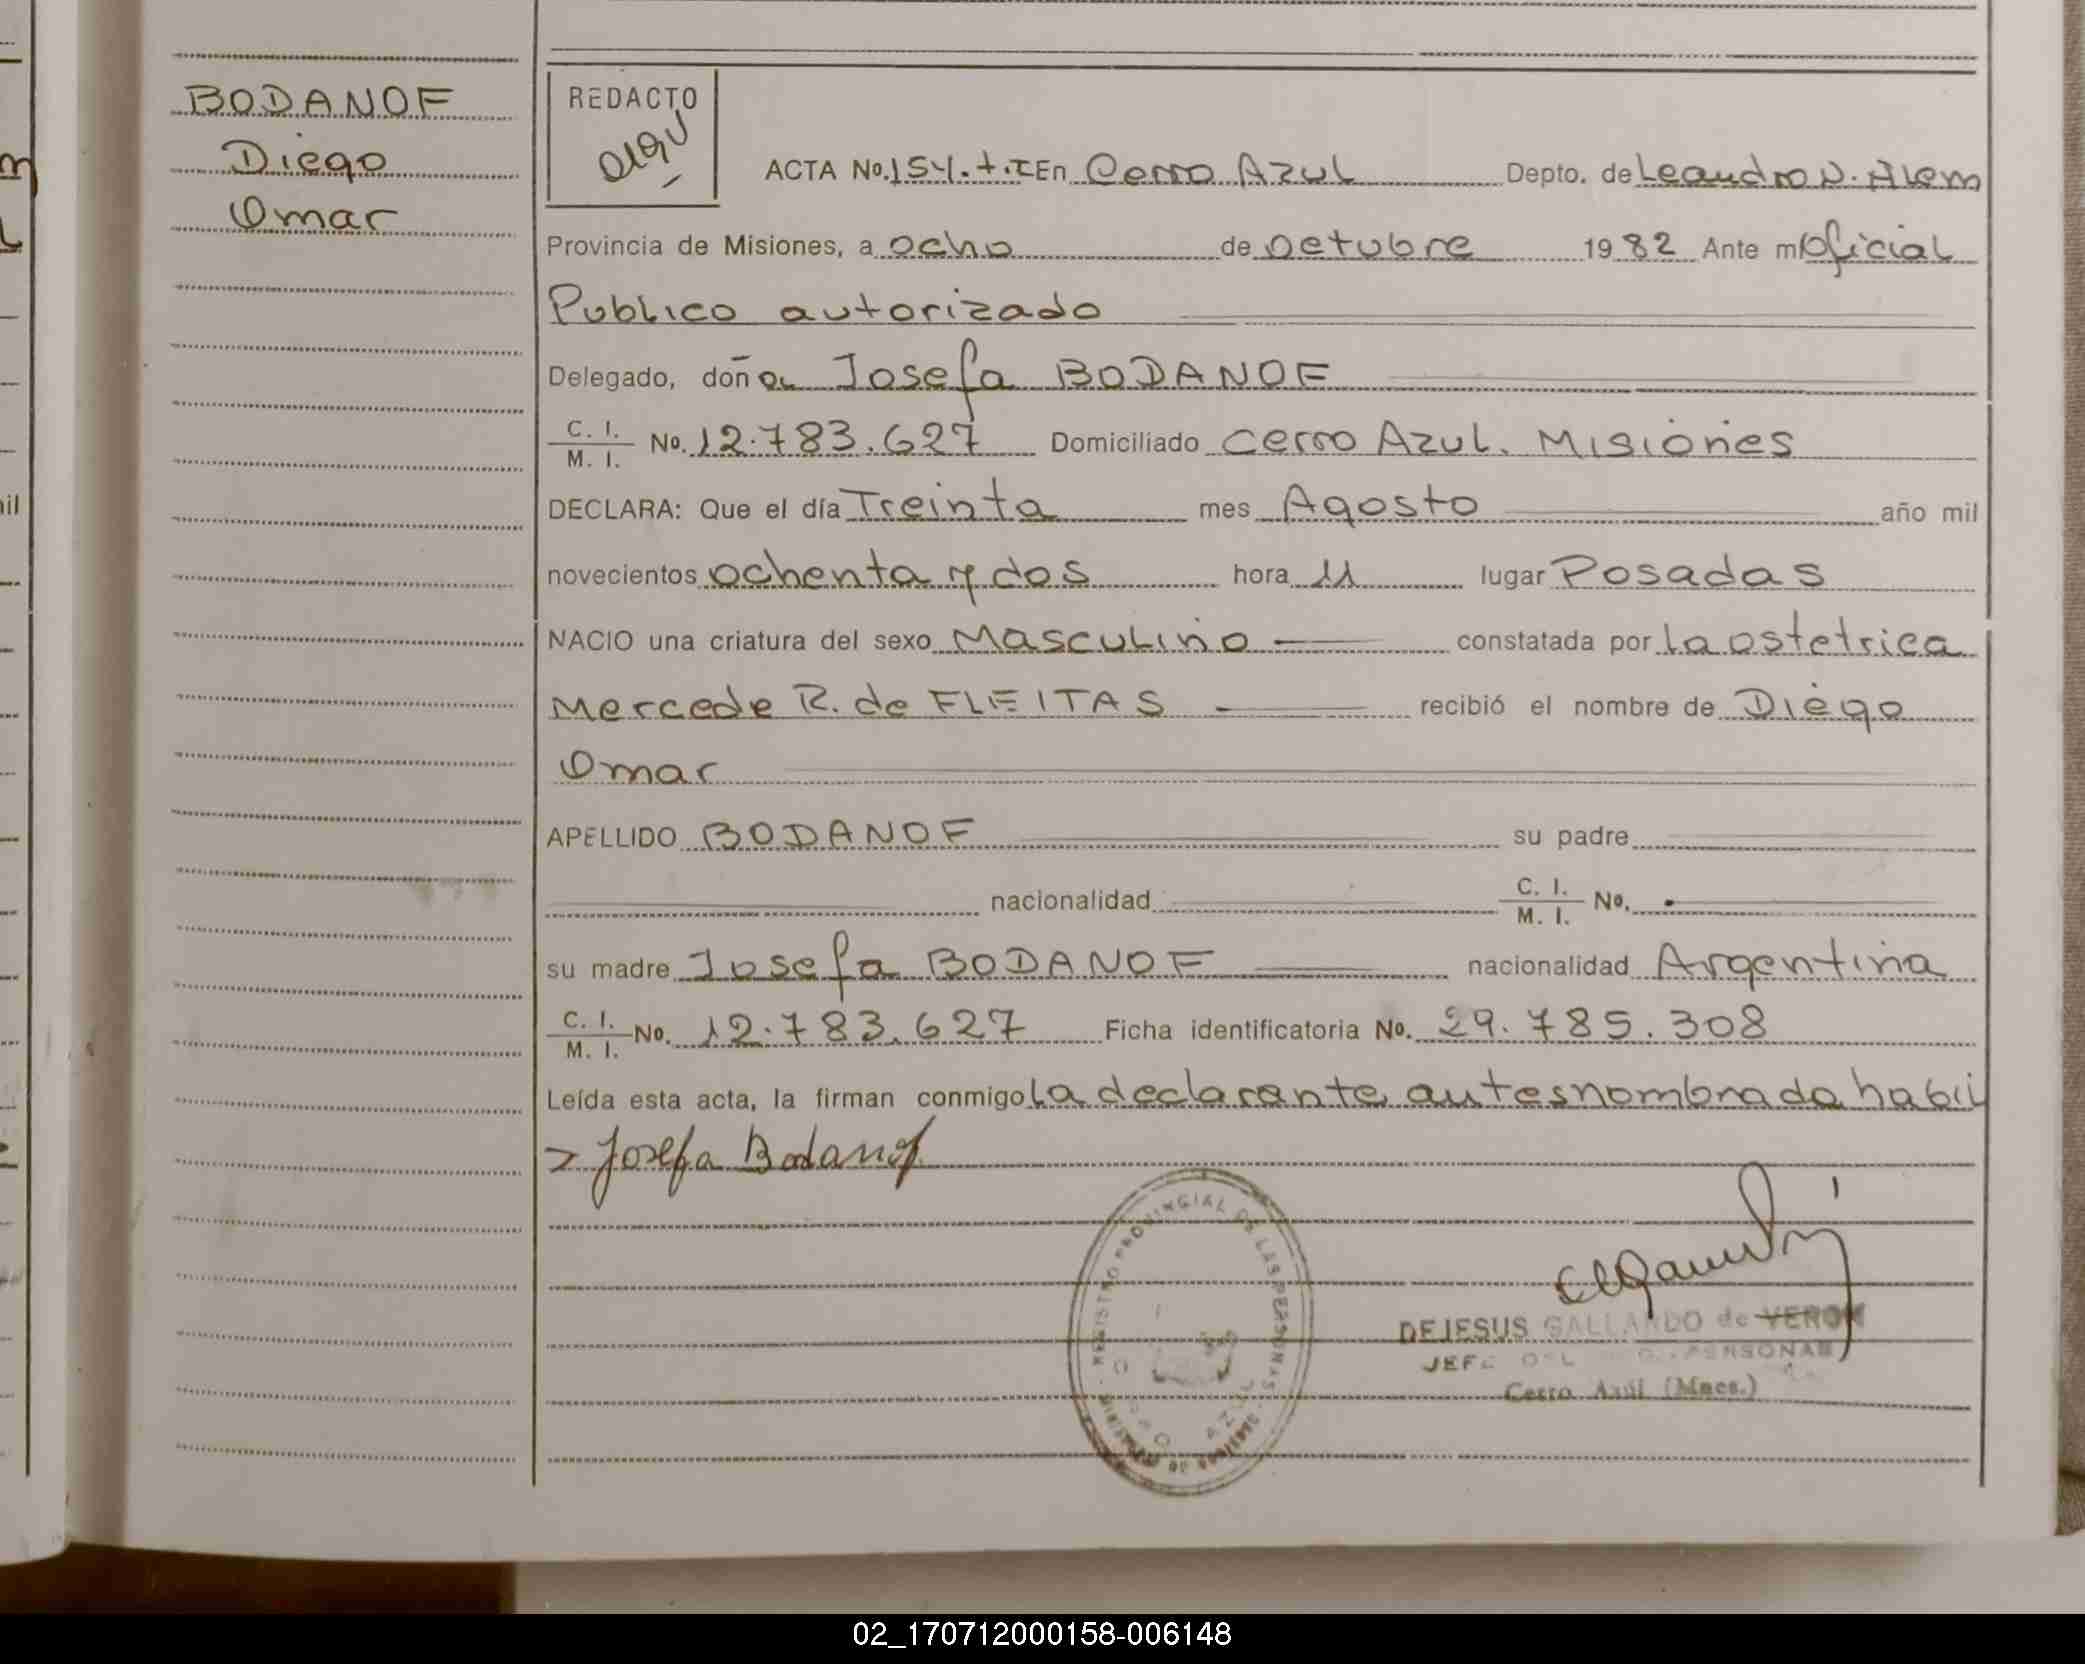 BODANOF
Diego
Omar
REDACTO
ACTA No. 154. t. I En Cerro Azul Depto. de Leandro N. Alem
Provincia de Misiones, a ocho de octubre 1982 Ante mí Oficial
Publico autorizado
Delegado, doña Josefa BODANOF
C. I. / M. I. No. 12.783.627 Domiciliado Cerro Azul. Misiones
DECLARA: Que el día Treinta mes Agosto año mil
novecientos ochenta y dos hora 11 lugar Posadas
NACIO una criatura del sexo Masculino constatada por la ostetrica
Mercede R. de FLEITAS recibió el nombre de Diego
Omar
APELLIDO BODANOF su padre
nacionalidad C. I. / M. I. No.
su madre Josefa BODANOF nacionalidad Argentina
C. I. / M. I. No. 12.783.627 Ficha identificatoria No. 29.785.308
Leída esta acta, la firman conmigo la declarante antesnombrada habil
> Josefa Bodanof
REGISTRO PROVINCIAL DE LAS PERSONAS
DEJESUS GALLARDO de VERON
JEFE DEL PERSONAS
Cerro Azul (Mnes.)
02_170712000158-006148